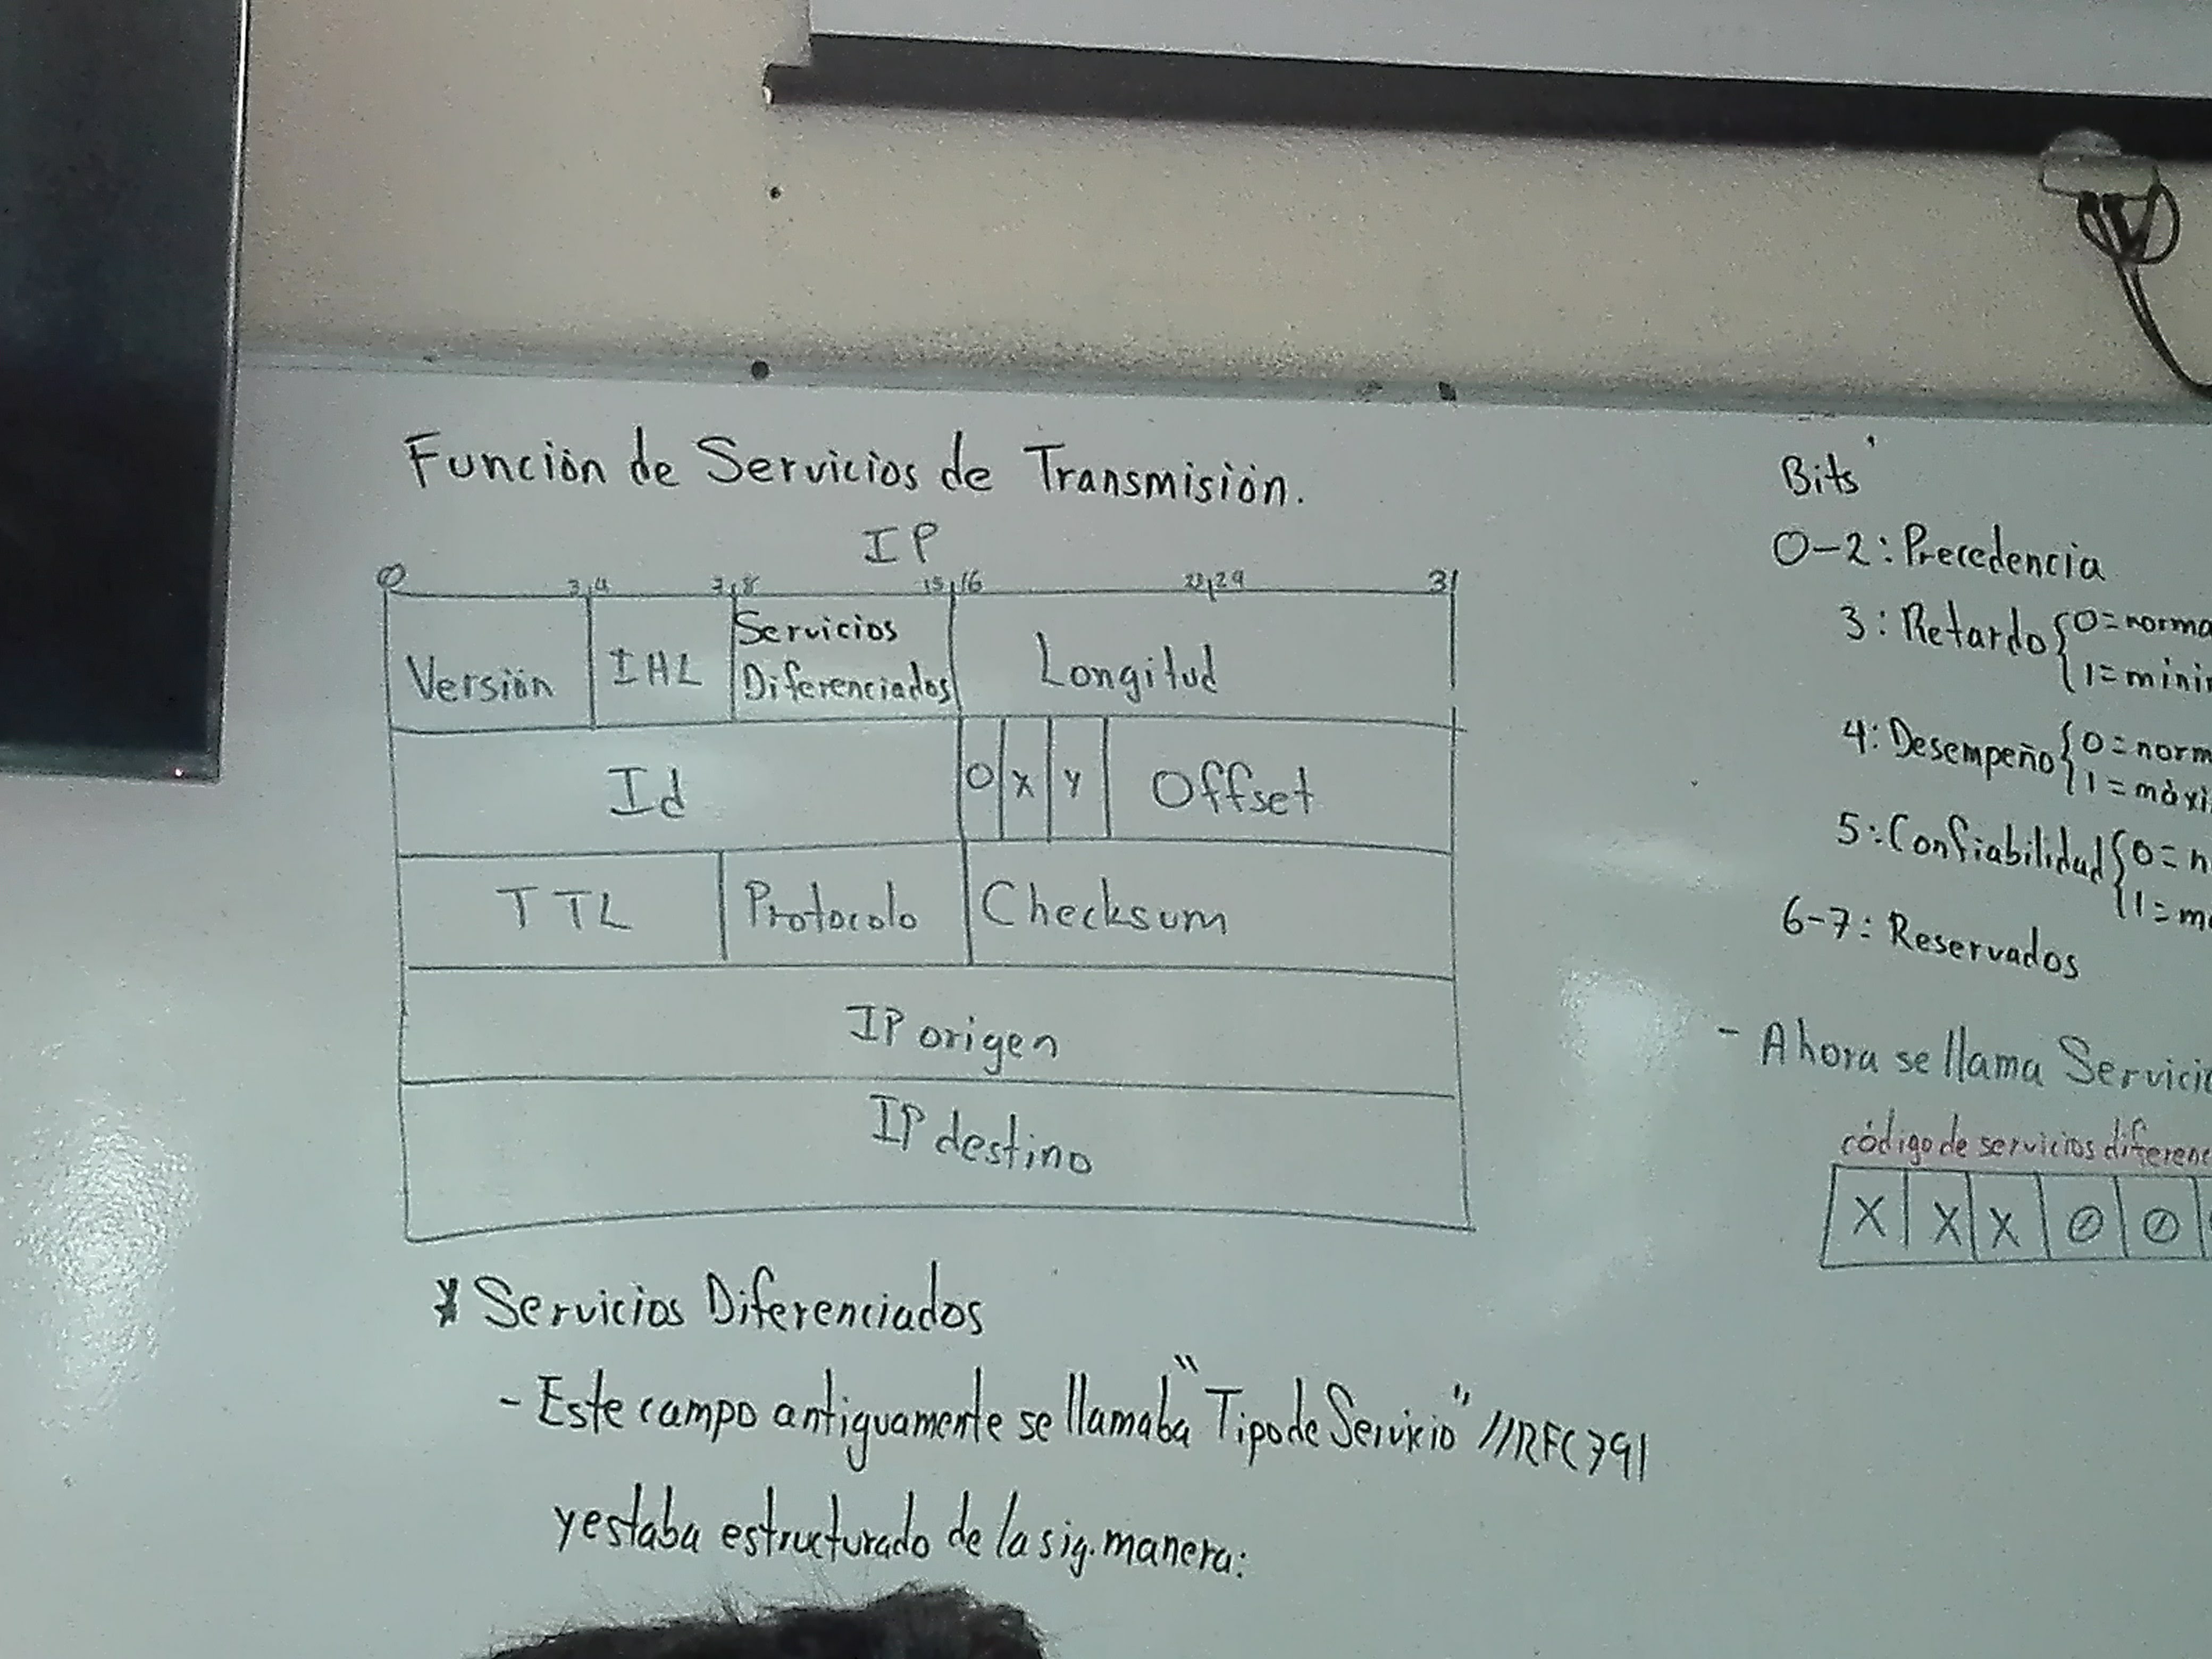 Función de Servicios de Transmisión.
IP
0 3 4 7 8 15 16 29 31
Versión IHL Servicios Diferenciados Longitud
Id 0 X Y Offset
TTL Protocolo Checksum
IP origen
IP destino
* Servicios Diferenciados
- Este campo antiguamente se llamaba "Tipo de Servicio" //RFC791
y estaba estructurado de la sig. manera:
Bits
0-2: Precedencia
3: Retardo { 0=norma
1=mini
4: Desempeño { 0=norm
1=máxi
5: Confiabilidad { 0=n
1=m
6-7: Reservados
- Ahora se llama Servici
código de servicios diferenc
X X X 0 0